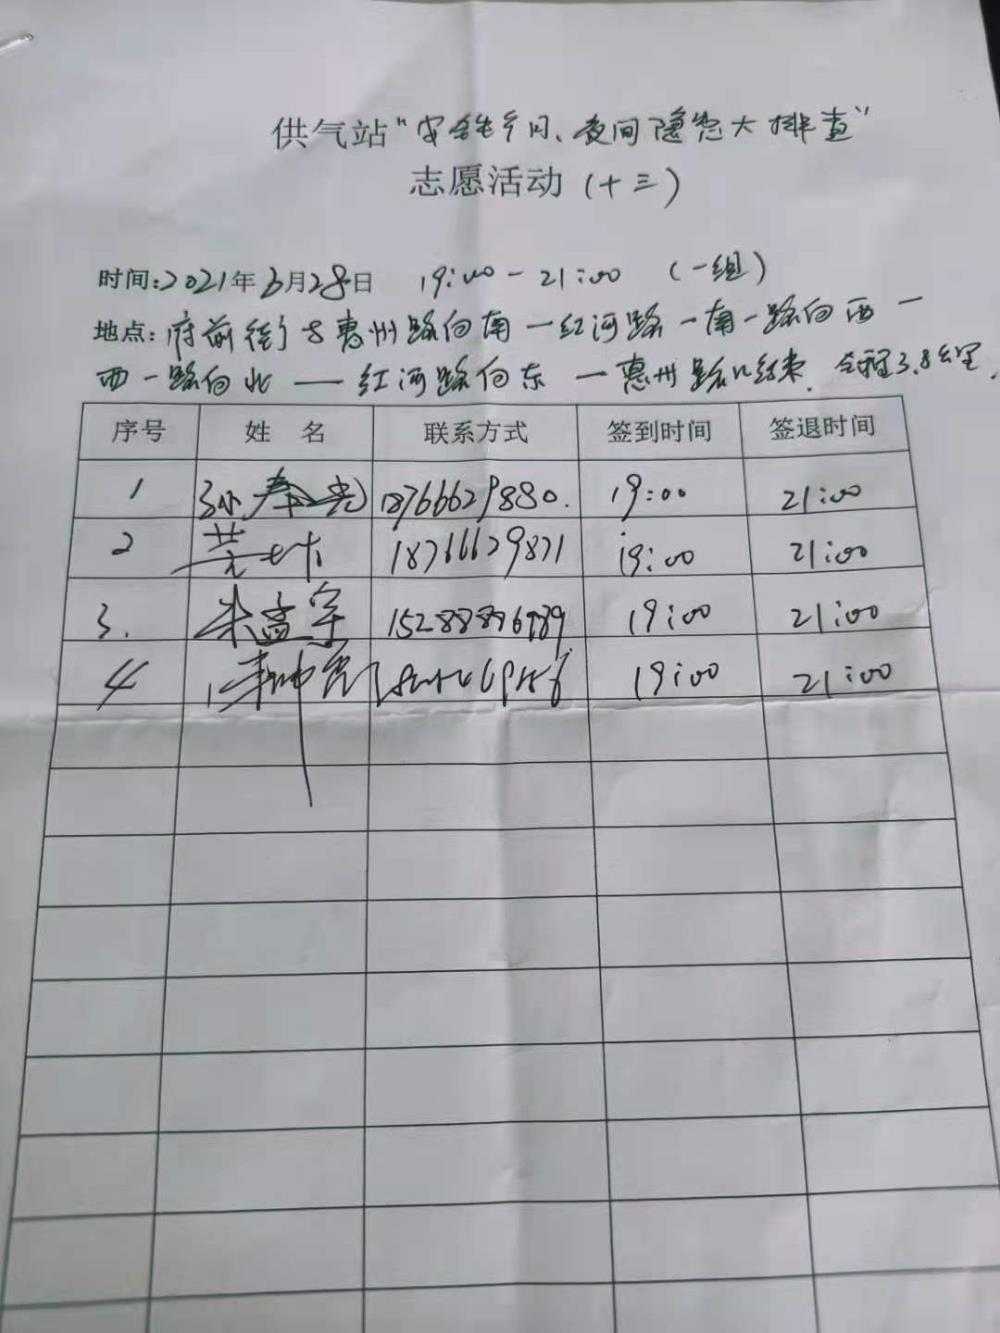 供气站“安全生产月、夜间隐患大排查”
志愿活动(十三)
时间:2021年6月28日 19:00-21:00 (一组)
地点:府前街与惠州路向南一红河路一南一路向西一
西一路向北一红河路向东一惠州路口结束.全程3.8公里.
序号 姓名 联系方式 签到时间 签退时间
1 孙奉光 18766629880. 19:00 21:00
2 18766629871 19:00 21:00
3. 朱孟宇 19:00 21:00
4 19:00 21:00